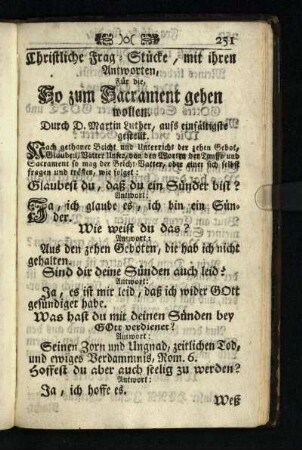 251
Christliche Frag-Stücke, mit ihren
Antworten,
Für die,
So zum Sacrament gehen
wollen.
Durch D. Martin Luther, aufs einfältigste
gestellt.
Nach gethaner Beicht und Unterricht der zehen Gebot,
Glauben, Vatter Unser, von den Worten der Tauff, und
Sacrament so mag der Beicht-Vatter, oder einer sich selbst
fragen und trösten, wie folget:
Glaubest du, daß du ein Sünder bist?
Antwort:
Ja, ich glaube es, ich bin ein Sün-
der.
Wie weist du das?
Antwort:
Aus den zehen Geboten, die hab ich nicht
gehalten.
Sind dir deine Sünden auch leid?
Antwort:
Ja, es ist mir leid, daß ich wider GOtt
gesündiget habe.
Was hast du mit deinen Sünden bey
GOtt verdienet?
Antwort:
Seinen Zorn und Ungnad, zeitlichen Tod,
und ewiges Verdammnis, Rom. 6.
Hoffest du aber auch seelig zu werden?
Antwort:
Ja, ich hoffe es.
Weß